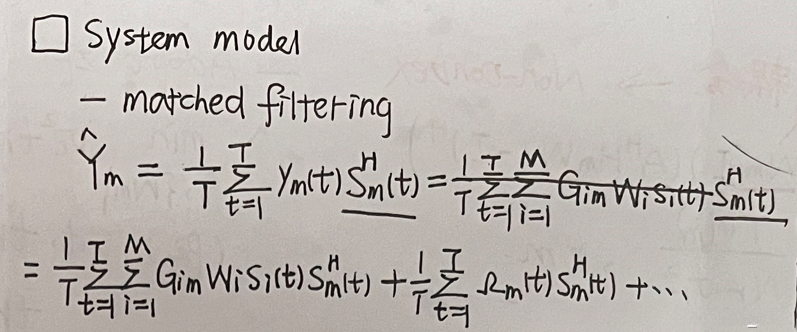 □ System model
– matched filtering
Ŷm = 1/T Σ_{t=1}^{T} Ym(t) Sm^H(t) = 1/T Σ_{t=1}^{T} Σ_{i=1}^{M} Gim Wi Si(t) Sm^H(t)
= 1/T Σ_{t=1}^{T} Σ_{i=1}^{M} Gim Wi Si(t) Sm^H(t) + 1/T Σ_{t=1}^{T} Ωm(t) Sm^H(t) + ...